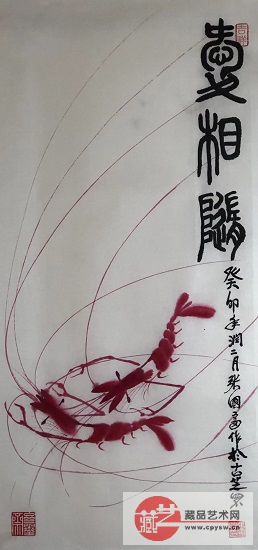 愛相隨
癸卯年润二月张国作於古
藏艺
藏品艺术网
www.cpysw.cn